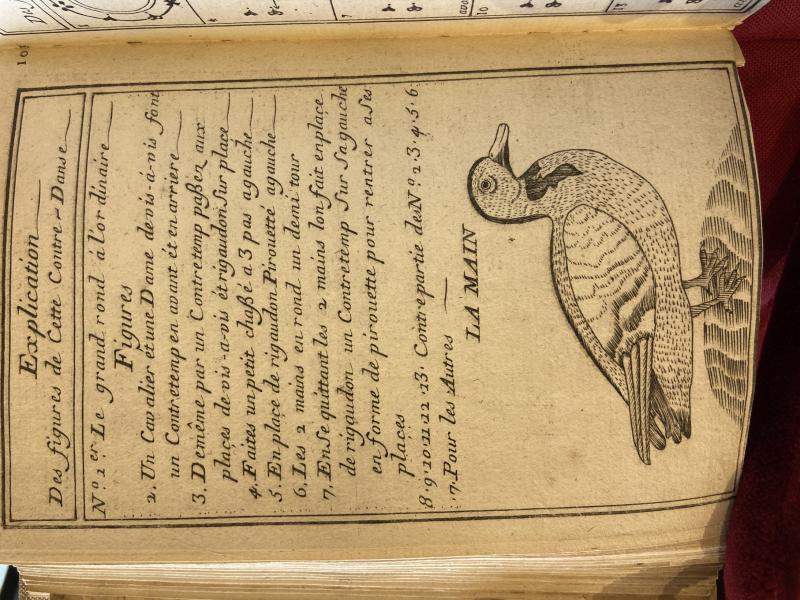 Explication
Des figures de Cette Contre-Danse
N.º 1.er Le grand rond á l'ordinaire
Figures
2. Un Cavalier et une Dame de vis-á-vis font
un Contretemp en avant ét en arriere
3. De même par un Contretemp paßer aux
places de vis-a-vis ét rigaudon Sur place
4. Faites un petit chaßé a 3 pas a gauche
5. En place de rigaudon Pirouetté a gauche
6. Les 2 mains en rond un demi tour
7. En Se quittant les 2 mains lon fait en place
de rigaudon un Contretemp Sur Sa gauche
en forme de pirouette pour rentrer a Ses
places
8. 9. 10. 11. 12. 13. Contre partie des N.º 2. 3. 4. 5. 6.
7. Pour les Autres
LA MAIN